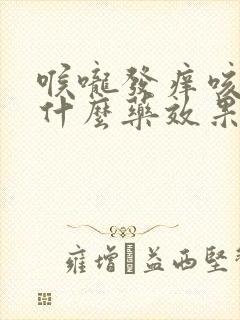 喉嚨發痒咳
什麼藥效果
雍增�益西堅